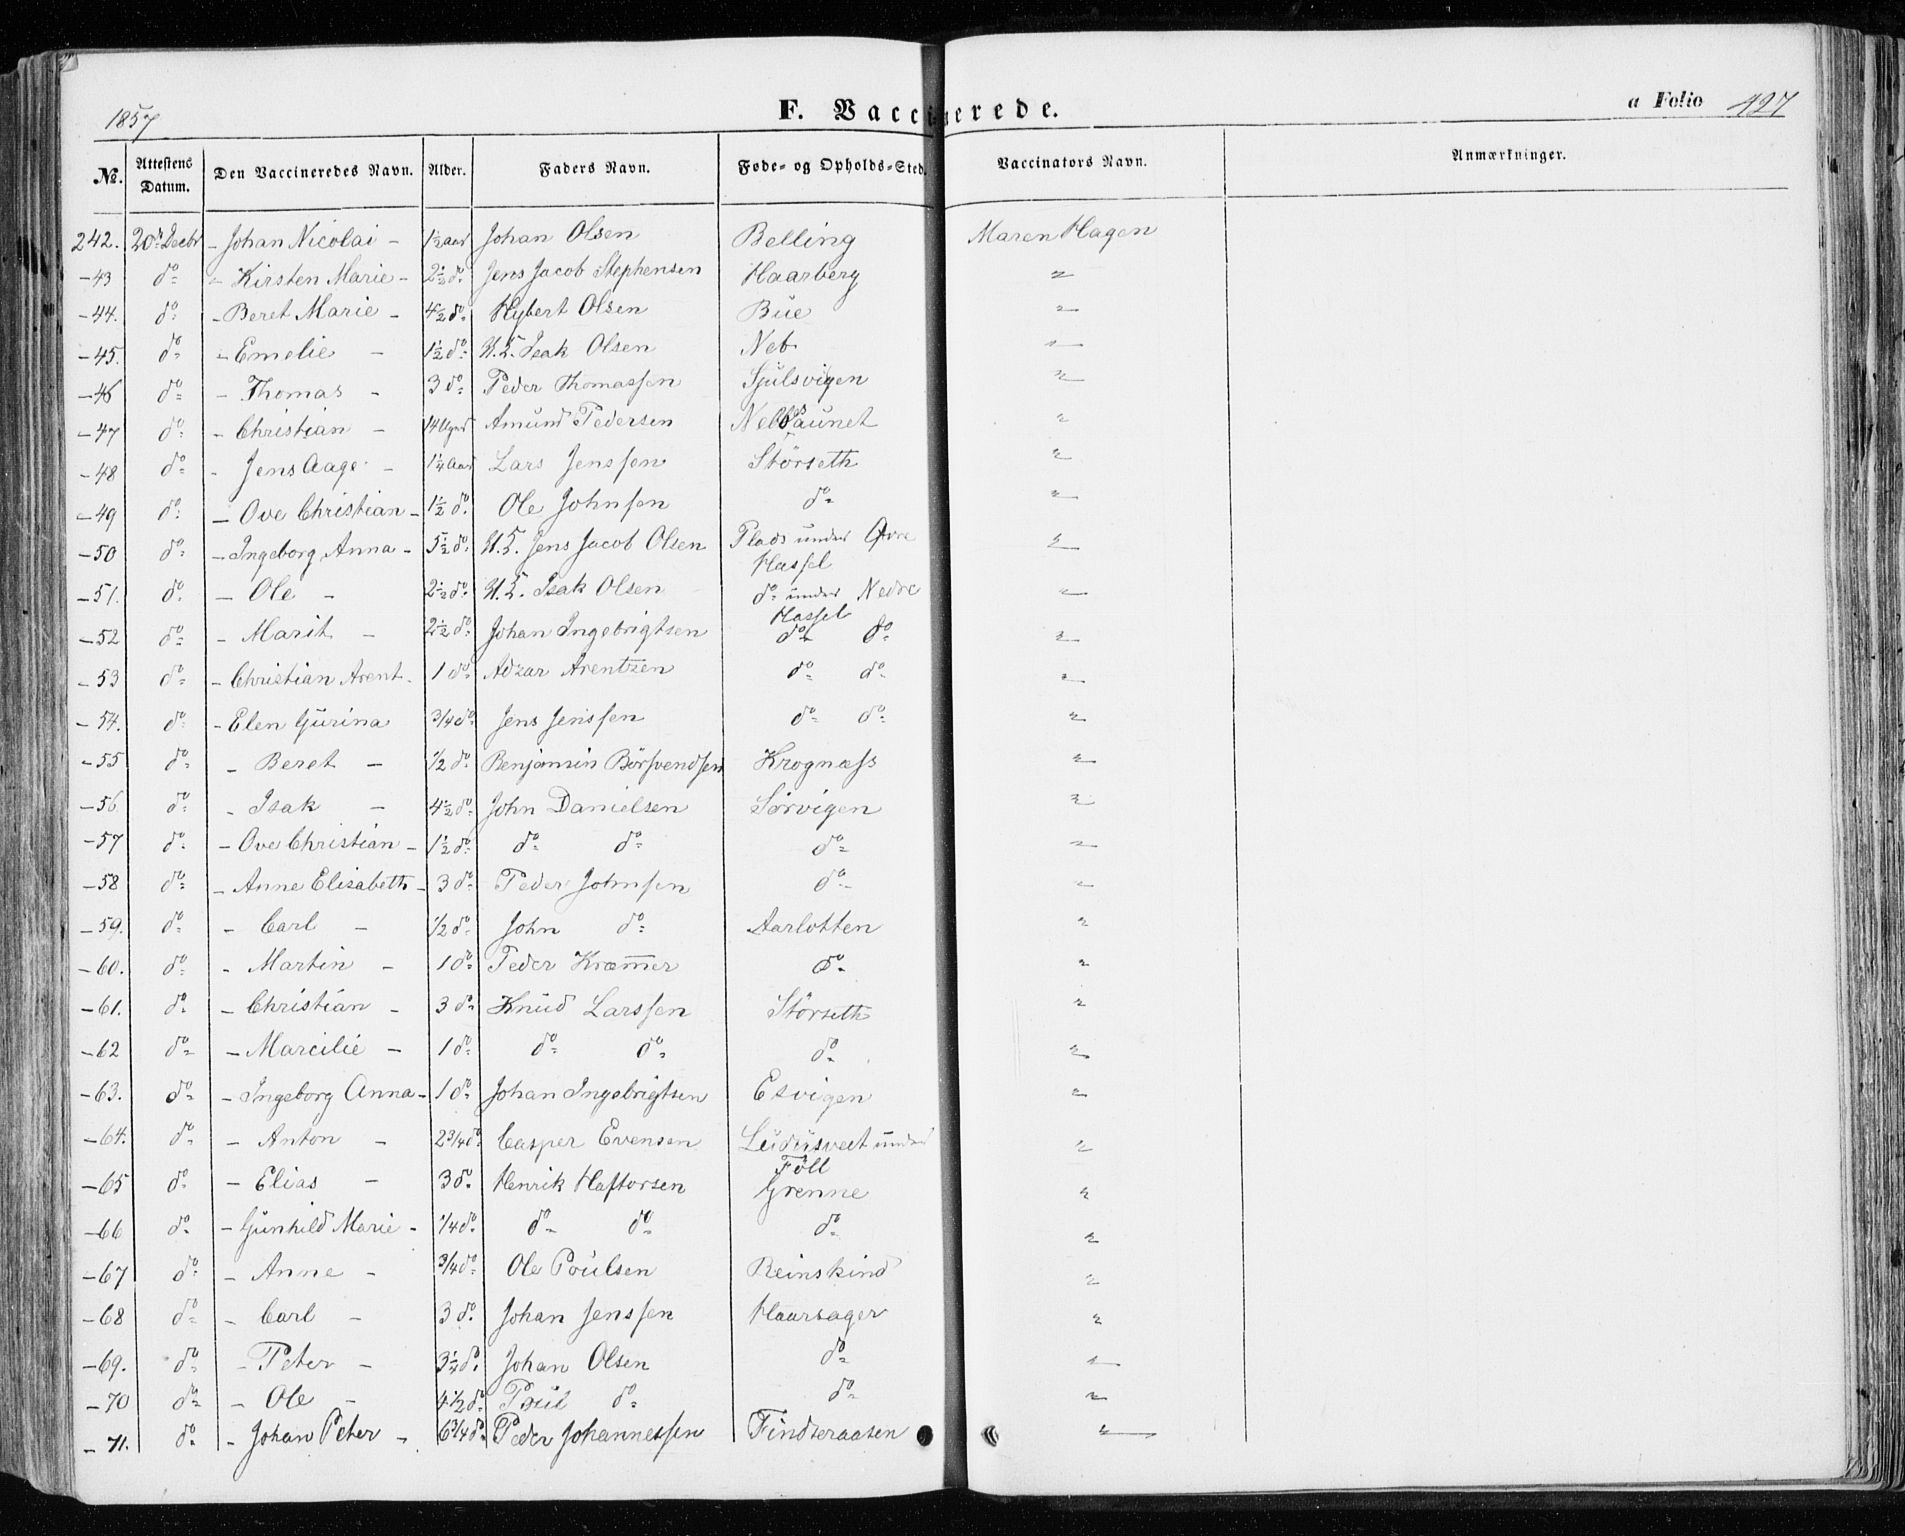 1857 F. Vaccinerede. a Folio 427
No. Attestens Datum. Den Vaccineredes Navn. Alder. Faders Navn. Føde- og Opholds-Sted. Vaccinators Navn. Anmærkninger.
242. 20de Decbr - Johan Nicolai - 1½ Aar Johan Olsen Belling Maren Hagen
-43 do - Kirsten Marie - 2½ do Jens Jacob Stephensen Haarberg "
-44. do - Beret Marie - 4½ do Hybert Olsen Bue "
-45. do - Emelie - 1½ do Isak Olsen Neb "
-46 do - Thomas - 3 do Peder Thomassen Sjulsvigen "
-47 do - Christian - 14 Uger Amund Pedersen "
-48 do - Jens Aage - 1¼ Aar Lars Jenssen Störseth "
-49 do - Ove Christian - 1½ do Ole Johnsen do "
-50 do - Ingeborg Anna - 5½ do Jens Jacob Olsen Plads under Øvre Hassel "
-51. do - Ole - 2½ do Isak Olsen do under Nedre Hassel "
-52 do - Marit - 2½ do Johan Ingebrigtsen do do "
-53 do - Christian Arent - 1 do Adzar Arentzen do do "
-54. do - Elen Gurina 3/4 do Jens Jenssen do do "
-55 do - Beret - 1/2 do Benjamin Börsvendsen Krognæss "
-56 do - Isak - 4½ do John Danielsen Sörvigen "
-57 do - Ove Christian - 1½ do do do do "
-58 do - Anne Elisabeth - 3 do Peder Johnsen do "
-59. do - Carl - 1/2 do John do Aarlotten "
-60. do - Martin - 1 do Peder Kræmmer do "
-61. do - Christian - 3 do Knud Larssen Störseth "
-62 do - Marcilie - 1 do do do do "
-63. do - Ingeborg Anna - 1 do Johan Ingebrigtsen Esvigen "
-64. do - Anton - 2 3/4 do Casper Evensen under Föll "
-65 do - Elias - 3 do Henrik Haftorsen Grenne "
-66 do - Gunhild Marie - 1/4 do do do do "
-67 do - Anne - 3/4 do Ole Poulsen Reinskind "
-68 do - Carl - 3 do Johan Jenssen Haarsager "
-69. do - Peter - 3½ do Johan Olsen do "
-70 do - Ole - 4½ do do do "
-71. do - Johan Peter - 6 3/4 do Peder Johannessen Findseraasen "